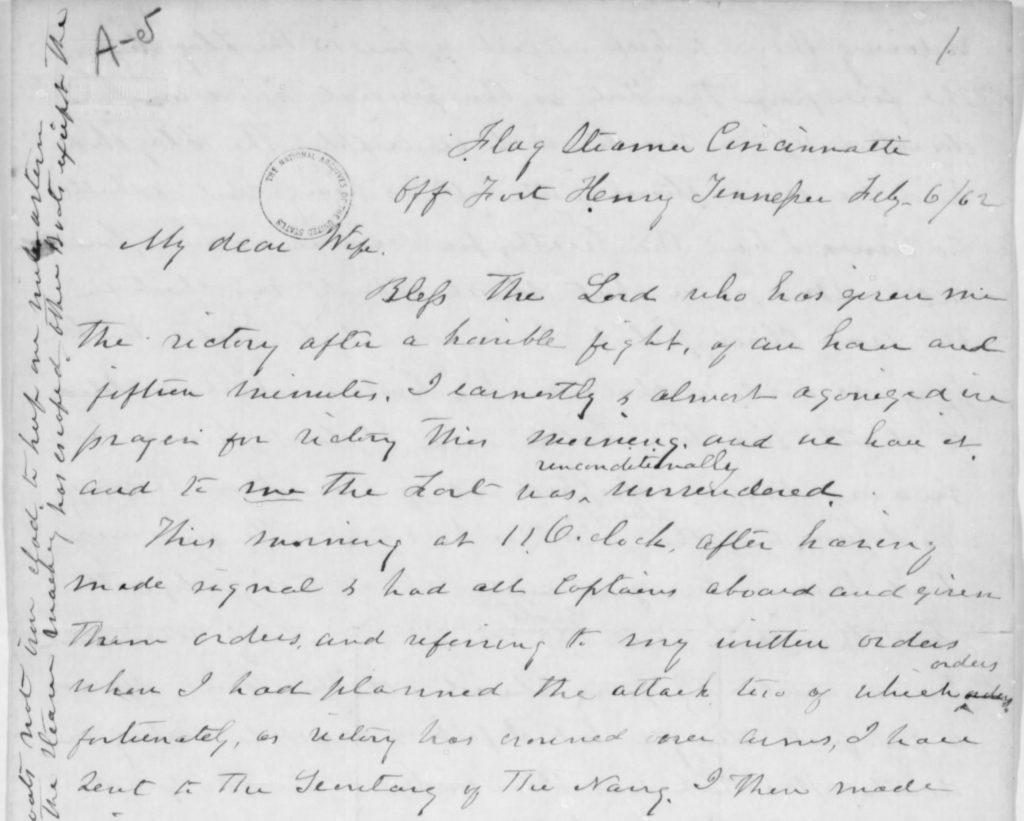 A-5
1.
Flag Steamer Cincinnatti
Off Fort Henry Tennessee Feby 6/62
THE NATIONAL ARCHIVES OF THE UNITED STATES
My dear Wife.
Bless the Lord who has given me
the victory after a horrible fight, of an hour and
fifteen minutes. I earnestly & almost agonized in
prayer for victory this morning, and we have it.
unconditionally
and to me the Fort was ^ surrendered.
This morning at 11 O.clock, after having
made signal & had all Captains aboard and given
them orders, and referring to my written orders
orders
when I had planned the attack two of which ^
fortunately, as victory has crowned our arms, I have
sent to the Secretary of the Navy. I then made
boats not iron clad, to keep one mile astern
the steam machy has escaped other Boats except the